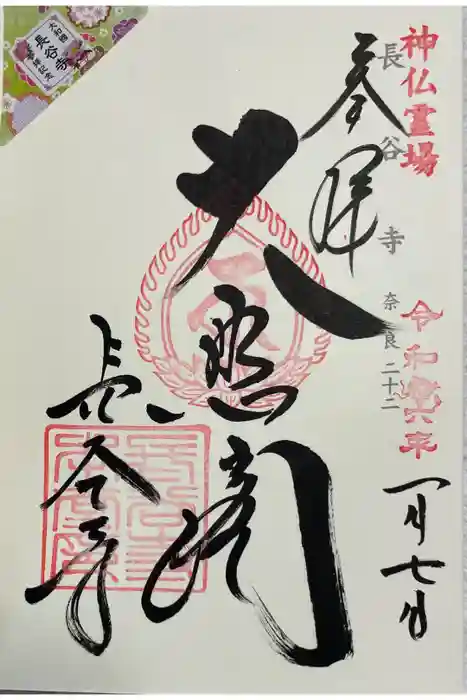 神仏霊場
長谷寺 奈良二十二
奉拝
令和六年
一月七日
大悲閣
長谷寺
長谷寺